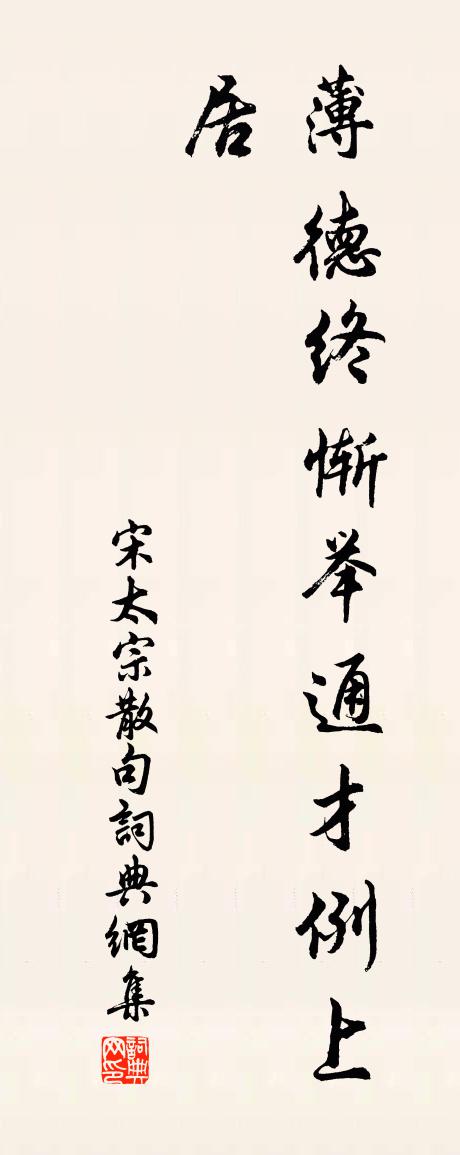 薄德终惭举通才例上
居
宋太宗散句詞典網集
詞典网印